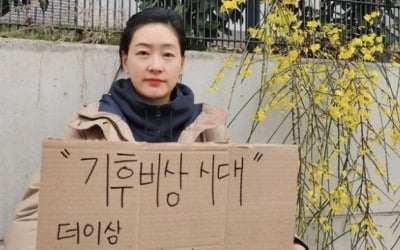 "기후비상 시대"
더이상